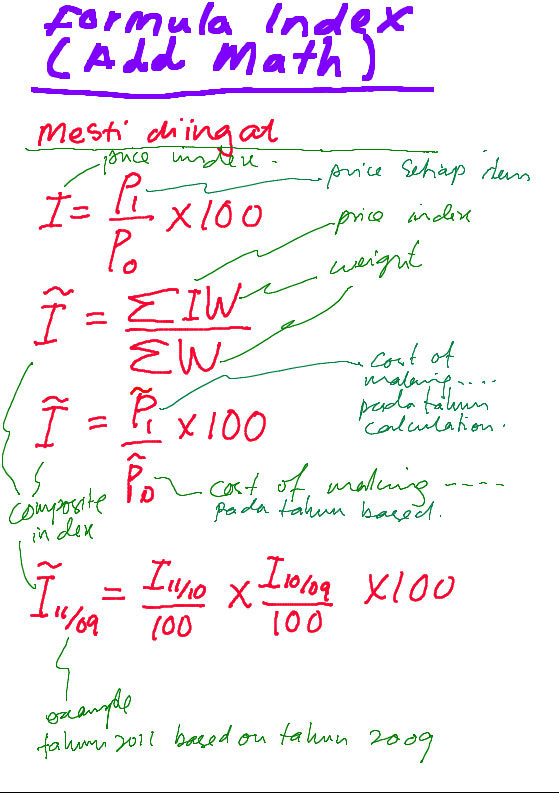 Formula Index
(Add Math)
Mesti diingat
price index.
price setiap item
I = P₁/P₀ × 100
price index
weight
Ĩ = ΣIW/ΣW
cost of
making....
pada tahun
calculation.
Ĩ = P̃₁/P̃₀ × 100
cost of making ----
pada tahun based.
composite
index
Ĩ₁₁/₀₉ = I₁₁/₁₀/100 × I₁₀/₀₉/100 × 100
example
tahun 2011 based on tahun 2009